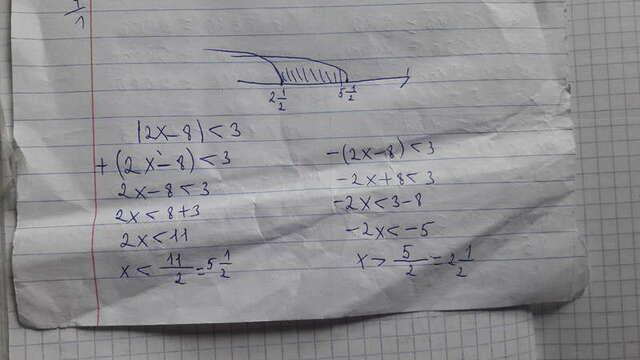 |2x-8|<3
+(2x-8)<3
2x-8<3
2x<8+3
2x<11
x<11/2=5 1/2
-(2x-8)<3
-2x+8<3
-2x<3-8
-2x<-5
x>5/2=2 1/2
2 1/2 5 1/2